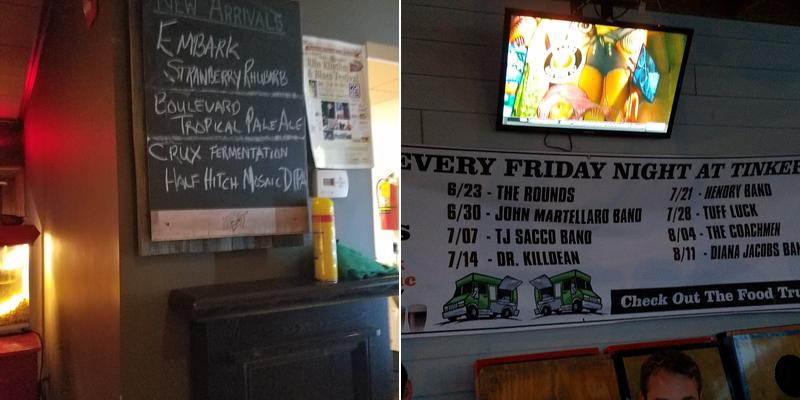 NEW ARRIVALS
EMBARK
STRAWBERRY RHUBARB
BOULEVARD
TROPICAL PALE ALE
CRUX FERMENTATION
HALF HITCH MOSAIC DIPA
EVERY FRIDAY NIGHT AT TINKER
6/23 - THE ROUNDS
6/30 - JOHN MARTELLARO BAND
7/07 - TJ SACCO BAND
7/14 - DR. KILLDEAN
7/21 - HENDRY BAND
7/28 - TUFF LUCK
8/04 - THE COACHMEN
8/11 - DIANA JACOBS BAN
Check Out The Food Tru